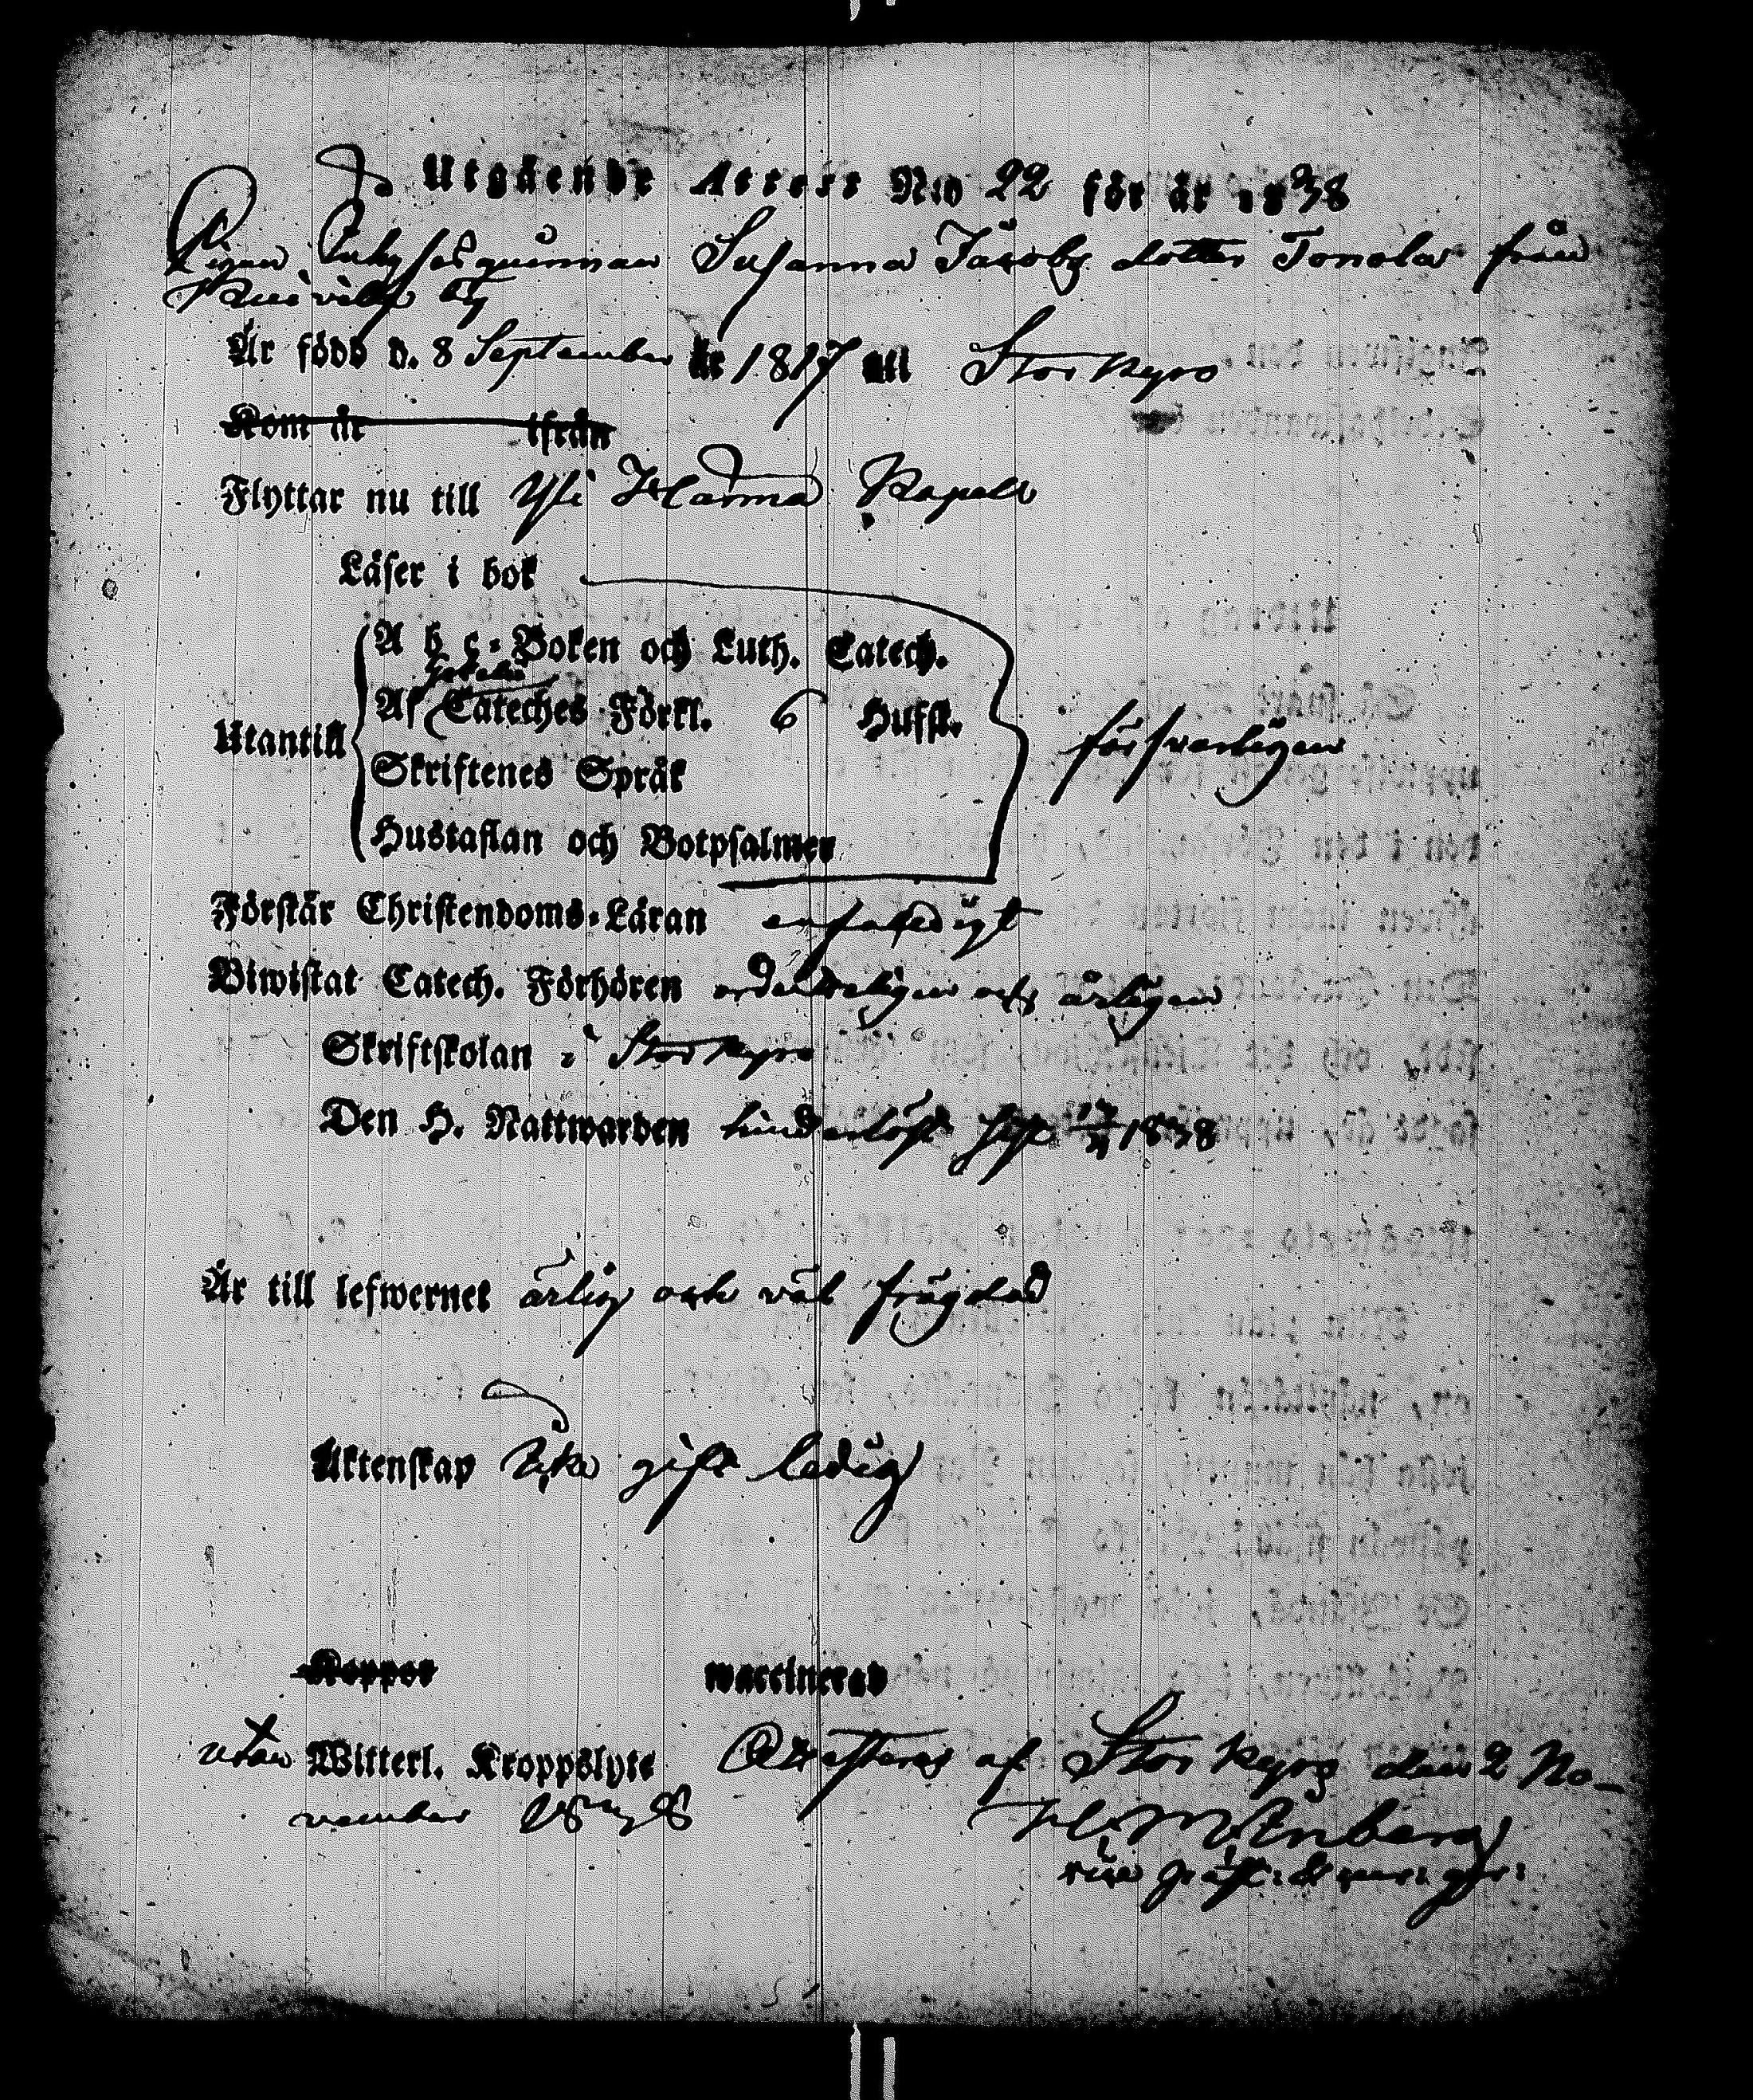 Utgående Attest N:o 22 för år 1838
Pigan Susanna Jacobs dotter Tonola från
by
Är född d. 8 September år 1817 uti Storkyro
Kom år ifrån
Flyttar nu till Kapell
Läser i bok
A b c-Boken och Luth. Catech.
Af Cateches Förkl. 6 Hufst.
Utantill försvarligen
Skriftenes Språk
Hustaflan och Botpsalmer
Förstår Christendoms-Läran enfaldigt
Biwistat Catech. Förhören ordenteligen och årligen
Skriftskolan i Storkyro
Den H. Nattwarden hinderlöst sist 1838
Är till lefwernet ärlig och väl frägdad
Äktenskap Icke gift ledig
Koppor waccinerad
utan Witterl. Kroppslyte Attesteras af Stor Kyro den 2 No-
vember 1838